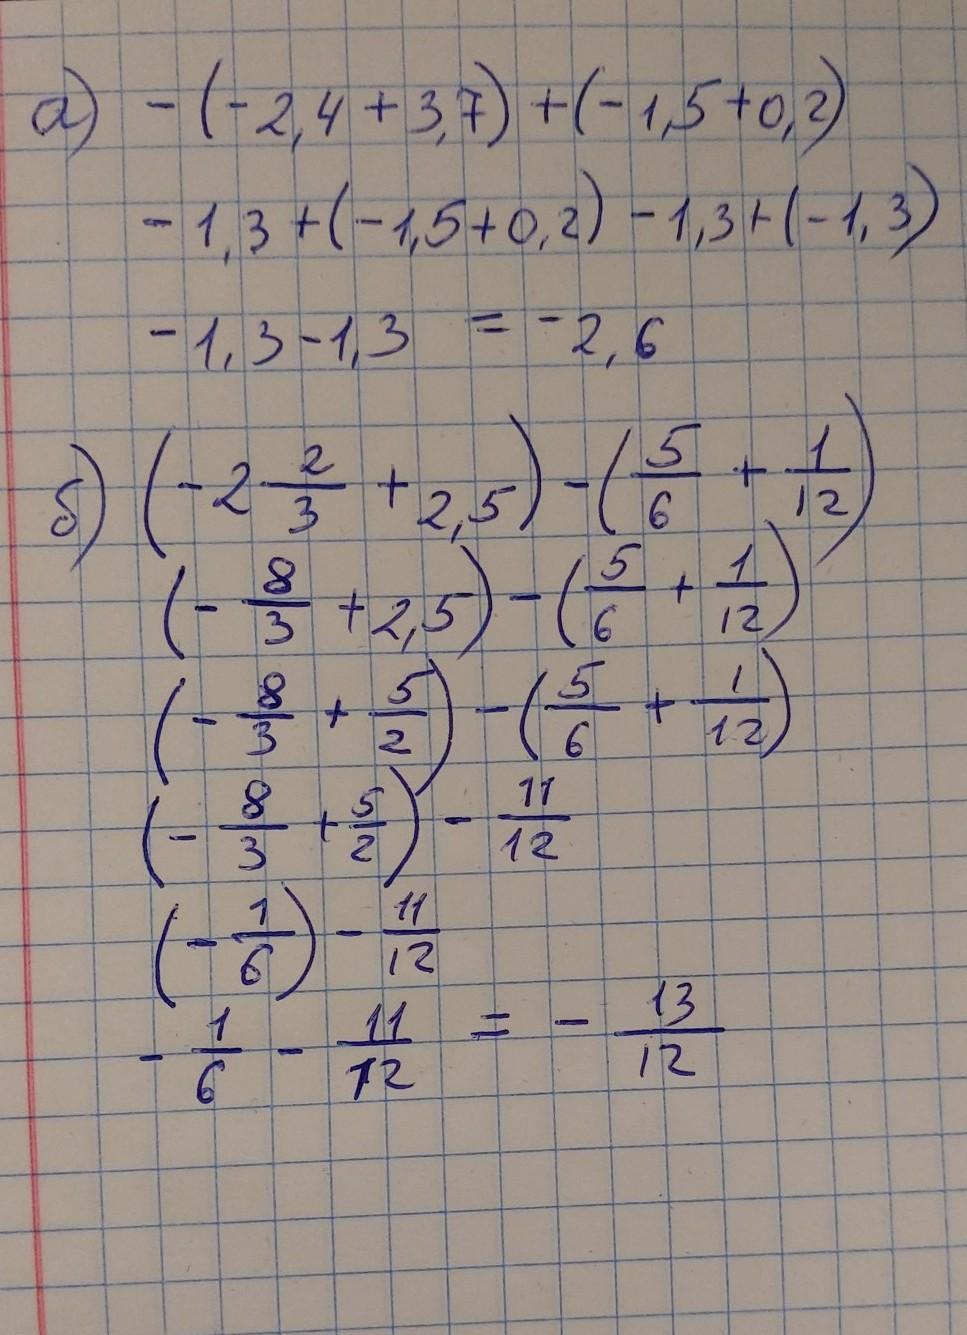 а) -(-2,4+3,7)+(-1,5+0,2)
-1,3+(-1,5+0,2) -1,3+(-1,3)
-1,3-1,3 = -2,6
б) (-2 2/3 + 2,5) - (5/6 + 1/12)
(- 8/3 + 2,5) - (5/6 + 1/12)
(- 8/3 + 5/2) - (5/6 + 1/12)
(- 8/3 + 5/2) - 11/12
(- 1/6) - 11/12
- 1/6 - 11/12 = - 13/12